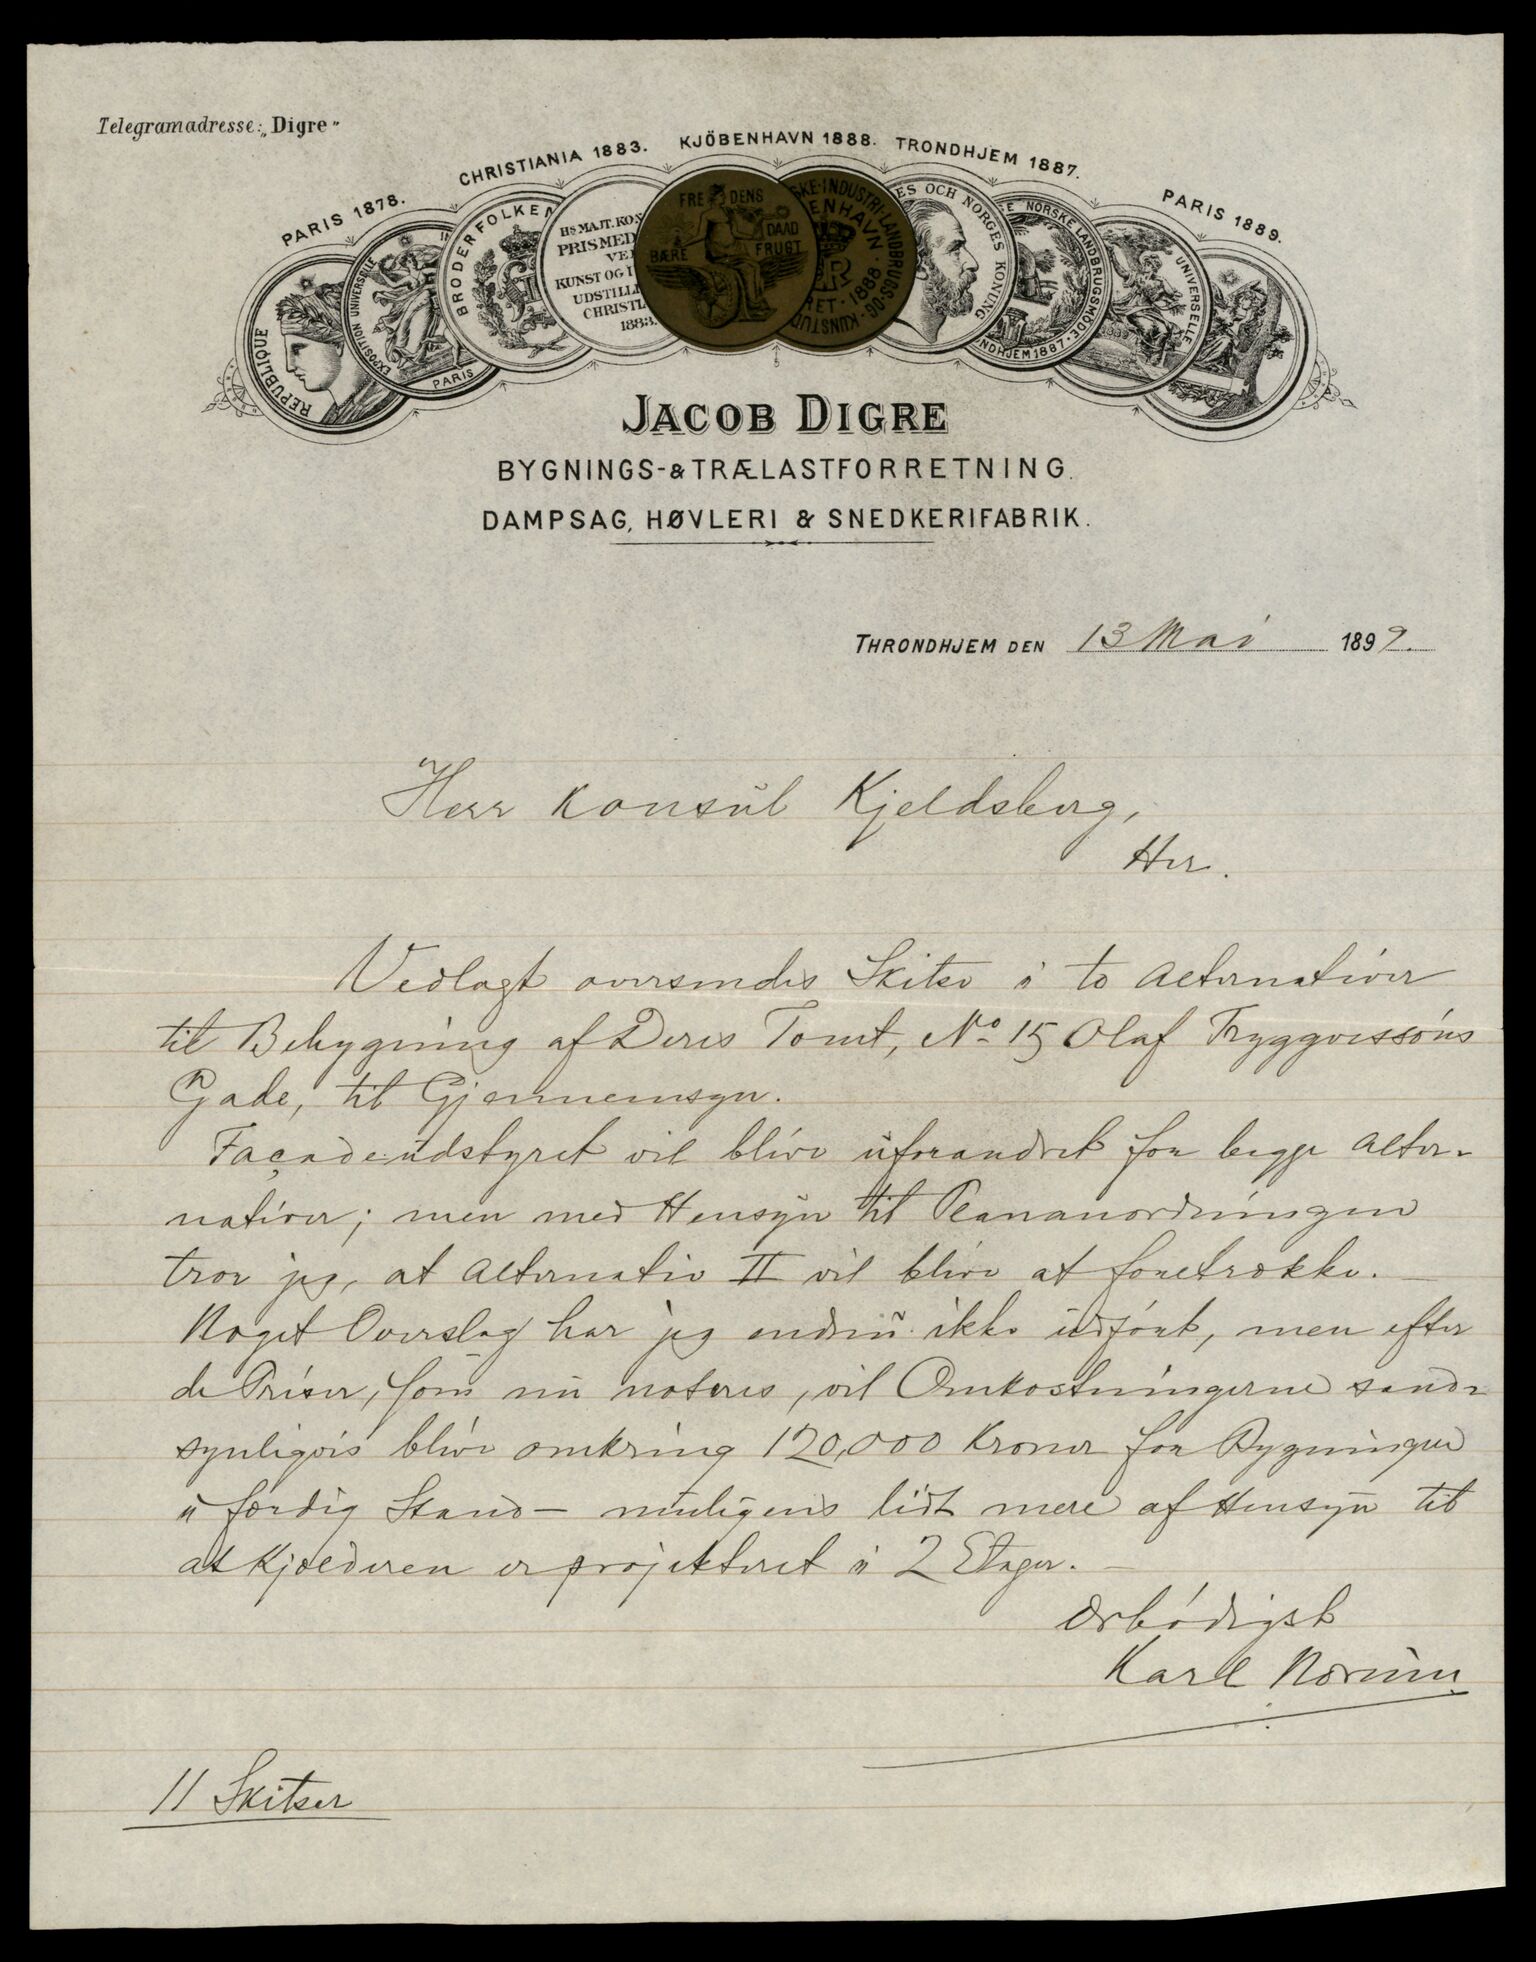 Telegramadresse: „Digre”
PARIS 1878. CHRISTIANIA 1883. KJÖBENHAVN 1888. TRONDHJEM 1887. PARIS 1889.
REPUBLIQUE
EXPOSITION UNIVERSELLE
PARIS
BRODERFOLKEN
Hs MAJT. KON
PRISMED
VE
KUNST OG I
UDSTILL
CHRISTI
1883.
FREDENS
DAAD
BÆRE FRUGT
SKE·INDUSTRI-LANDBRUGS-OG-KUNSTUD
ENHAVN·1888·
ES OCH NORGES KONUNG
E NORSKE LANDBRUGSMÖDE
NDHJEM 1887
UNIVERSELLE
JACOB DIGRE
BYGNINGS- & TRÆLASTFORRETNING.
DAMPSAG, HØVLERI & SNEDKERIFABRIK.
THRONDHJEM DEN 13 Mai 1899.
Herr Konsul Kjeldsberg,
Her.
Vedlagt oversendes Skitse i to Alternativer
til Bebygning af Deres Tomt, No 15 Olaf Tryggvessøns
Gade, til Gjennemsyn.
Façadeudstyret vil blive uforandret for begge Alter-
nativer; men med Hensyn til Plananordningen
tror jeg, at Alternativ II vil blive at foretrække. —
Noget Overslag har jeg endnu ikke udført, men efter
de Priser, som nu noteres, vil Omkostningerne sand-
synligvis blive omkring 120,000 Kroner for Bygningen
i færdig Stand — muligens lidt mere af Hensyn til
at Kjælderen er projekteret i 2 Etager. —
Ærbødigst
Karl Norum
11 Skitser